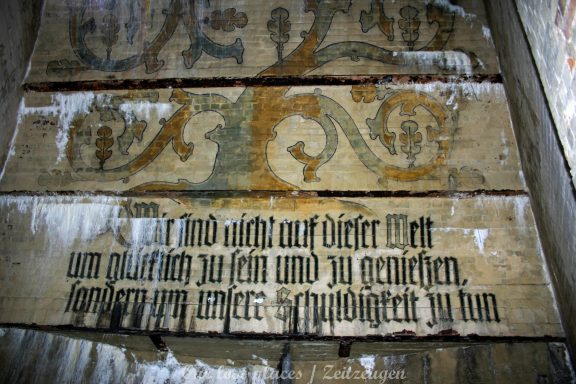 Wir sind nicht auf dieser Welt
um glücklich zu sein und zu genießen,
sondern um unsere Schuldigkeit zu tun
lost places / Zeitzeugen